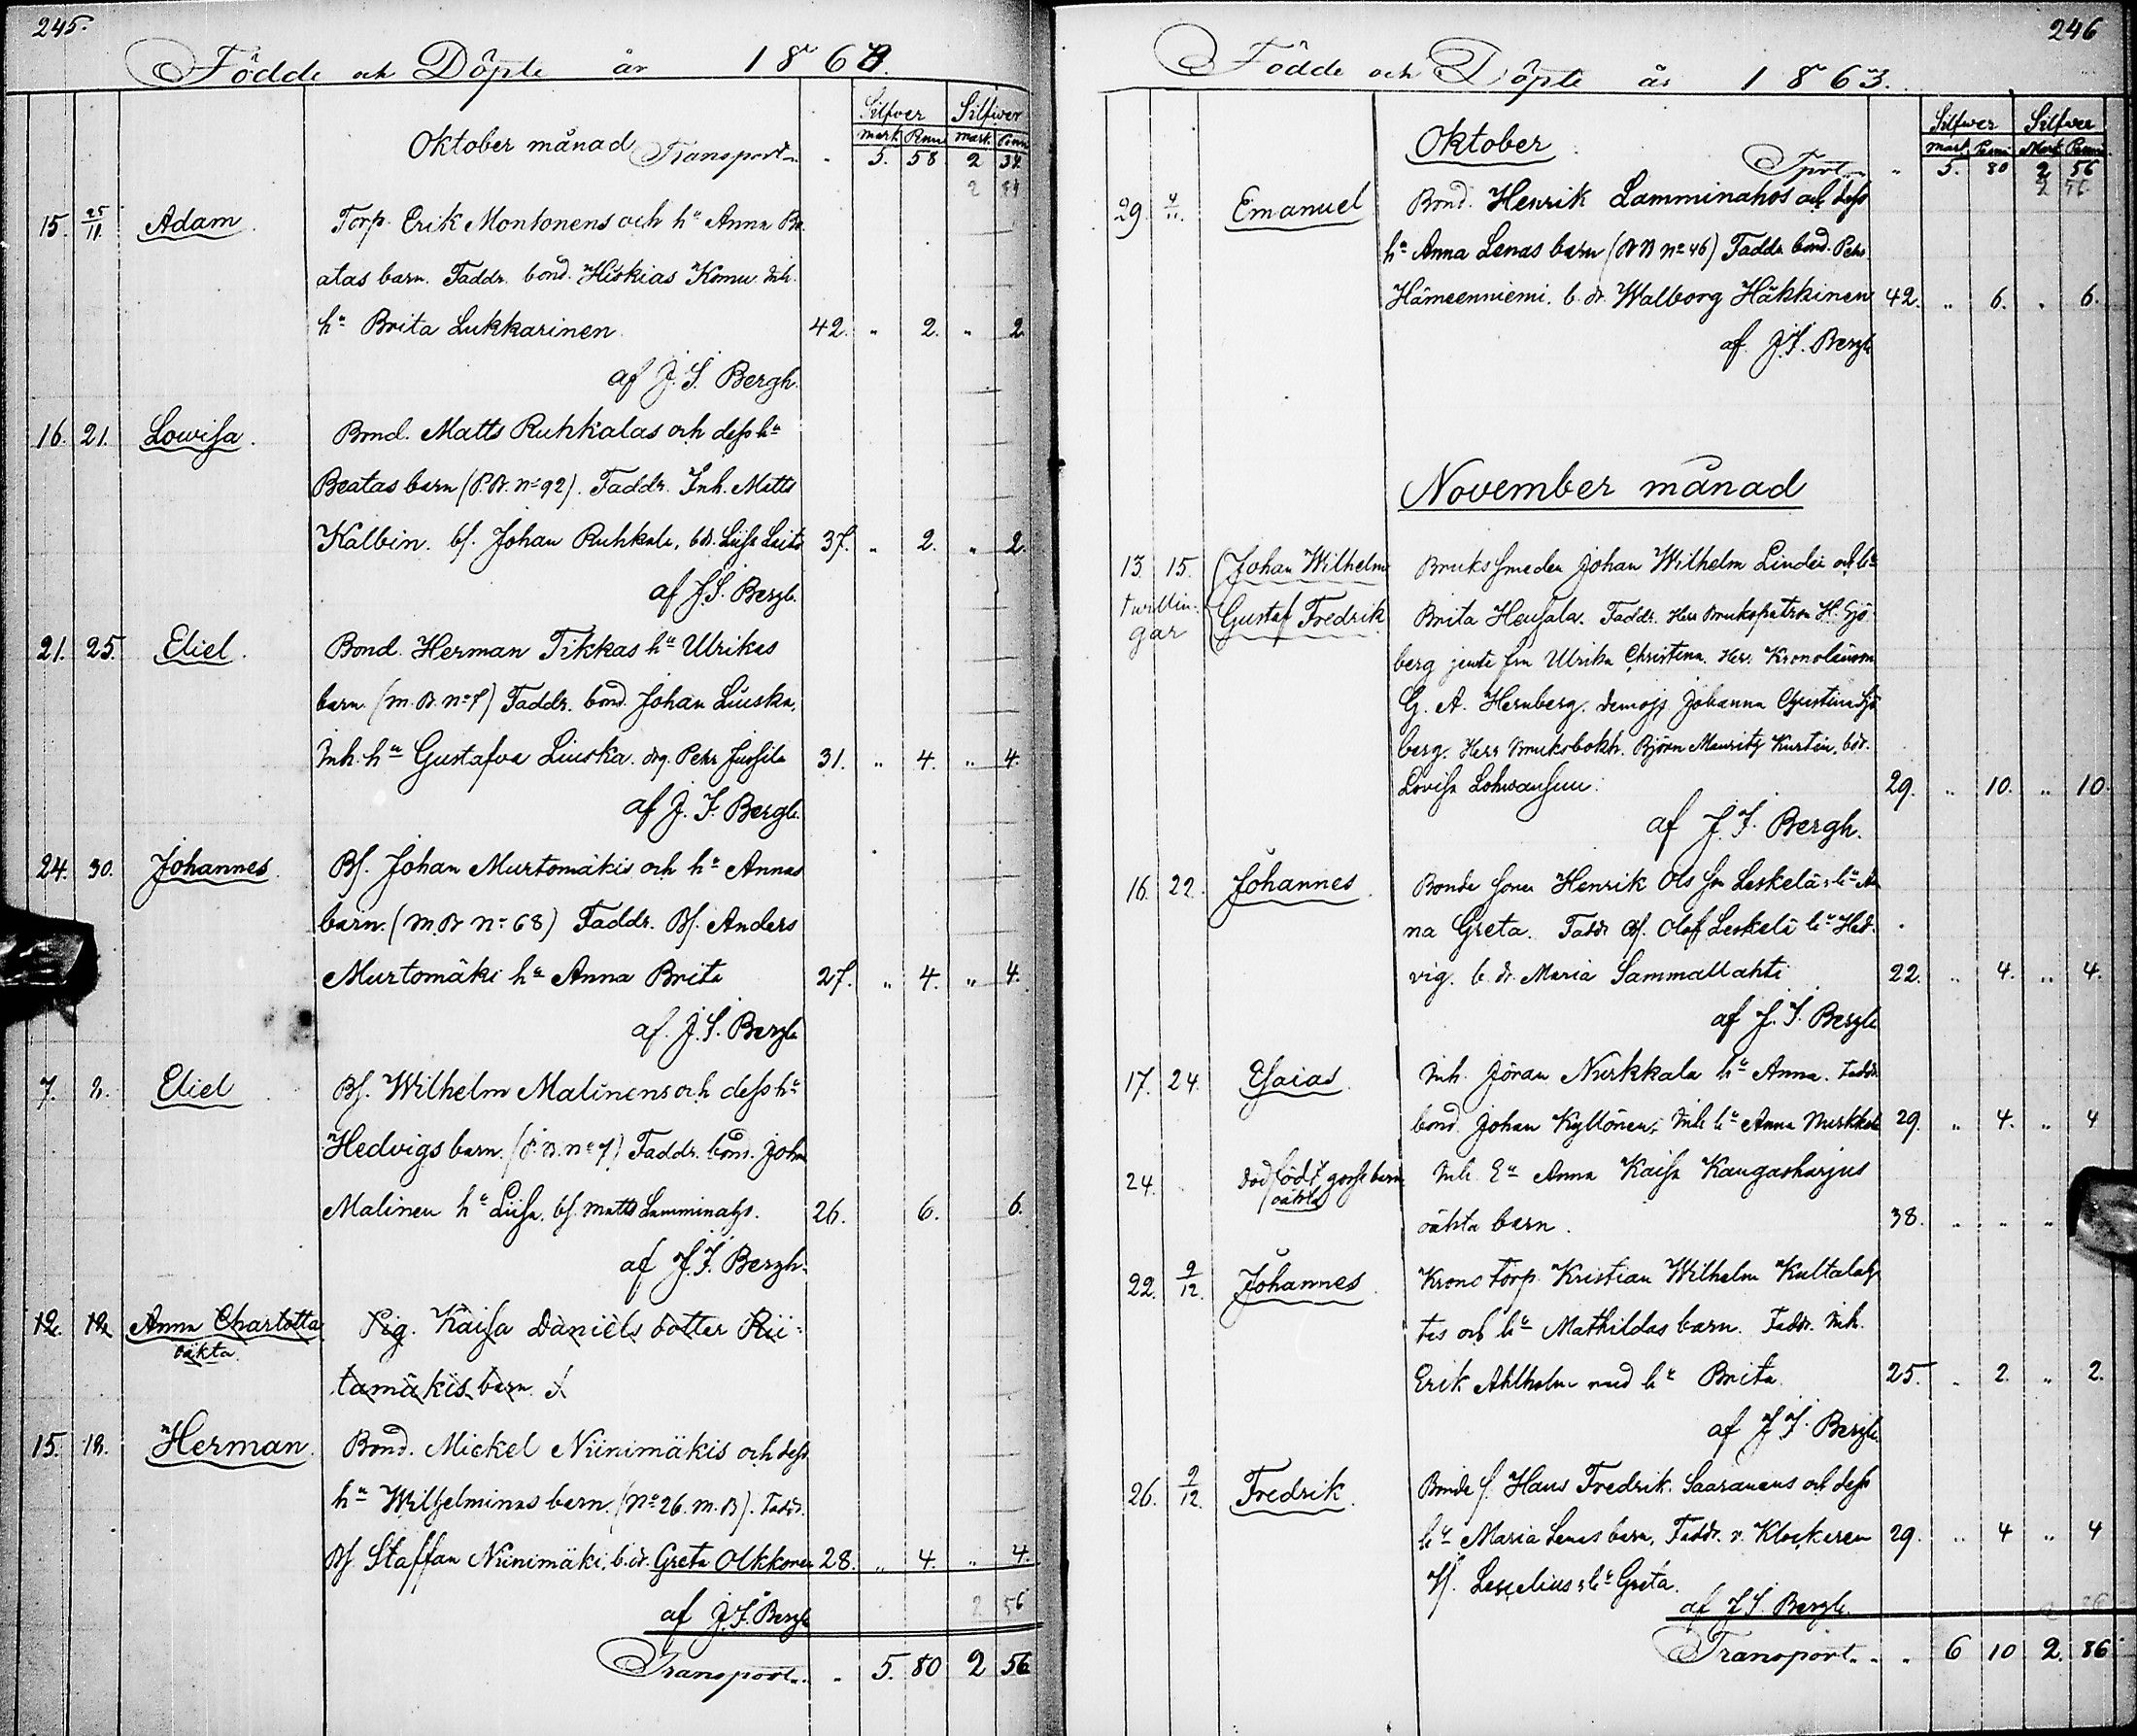 245.
Födde och Döpte år 1863.
Silfver Silfwer
mark. Penn mark. Penn
Oktober månad Transport " 5. 58 2 34
2 34
15. 25/11. Adam. Torp. Erik Montonens och hu Anna Be
atas barn. Faddr. bond. Hiskias Komu. Inh.
hu Brita Lukkarinen 42. " 2. " 2.
af J. F. Bergh.
16. 21. Lowisa. Bond. Matts Ruhkalas och dess hu
Beatas barn (P.B. No 92). Faddr. Inh. Matts
Kalbin. bs. Johan Ruhkala, bdr. Lisa 37. " 2. " 2.
af J. F. Bergh.
21. 25. Eliel. Bond. Herman Tikkas hu Ulrikas
barn. (M.B. No 7) Faddr. bond. Johan Liuska,
Inh. hu Gustafva Liuska. drg. Petr Jussila 31. " 4. " 4.
af J. F. Bergh.
24. 30. Johannes. Bs. Johan Murtomäkis och hu Annas
barn. (M.B No 68) Faddr. Bs. Anders
Murtomäki hu Anna Brita 27. " 4. " 4.
af. J. F. Bergh
7. 8. Eliel Bs. Wilhelm Malinens och dess hu
Hedvigs barn. (P.B. No 7) Faddr. bond. Johan
Malinen hu Lisa. bs. Matts 26. 6. 6.
af J. F. Bergh.
12. 12. Anna Charlotta Pig. Kaisa Daniels dotter Rii-
oäkta. tamäkis barn.
15. 18. Herman. Bond. Mickel Niinimäkis och dess
hu Wilhelminas barn. (No 26. M.B). Faddr.
Bs. Staffan Niinimäki, b.dr. Greta Olkkonen 28. " 4. " 4.
af J. F. Bergh
2 56
Transport. " 5. 80 2 56
246
Födde och Döpte år 1863.
Silfwer Silfwer
mark. Penni Mark Penni
Oktober Tport. " 5. 80 2 56
2 56
29. 4/11. Emanuel Bond. Henrik Lamminahos och dess
hu Anna Lenas barn (No 46) Faddr. bond. Petr.
Hämeenniemi. b. dr. Walborg Häkkinen 42. " 6. " 6.
af J. F. Bergh
November månad
13. 15. Johan Wilhelm Bruks smeden Johan Wilhelm och hu
twillin- Gustaf Fredrik Brita. Faddr. Herr Brukspatron H. Sjö
gar
berg jemte fru Ulrika Christina. Herr Kronolänsm
G. A. Hernberg. demojs Johanna Christina Sjö
berg. Herr Bruksbokh. Björn Mauritz Kurtén, bdr.
Lovisa 29. " 10. " 10.
af J. F. Bergh.
16. 22. Johannes. Bonde sonen Henrik Ols son Leskelä, hu An
na Greta. Faddr Bs. Olof Leskelä hu Hed-
vig. b. dr. Maria Sammallahti 22. " 4. " 4.
af J. F. Bergh
17. 24. Esaias. Inh. Jöran Nurkkala hu Anna. Faddr.
bond. Johan Kyllönen, Inh hu Anna Nurkkala 29. " 4. " 4
24. Död född gosse barn Inh. Anna Kaisa Kangasharjus
oäkta oäkta barn. 38. " " "
22. 9/12. Johannes. Krono torp. Kristian Wilhelm Kultalah
tis och hu Mathildas barn. Faddr. Inh.
Erik Ahlholm med hu Brita. 25. " 2. " 2.
af J. F. Bergh.
26. 9/12. Fredrik. Bonde s. Hans Fredrik Saaranens och dess
hu Maria Lenas barn, Faddr. v. Klockaren 29. " 4 " 4
hu Greta.
af J. F. Bergh.
Transport. " 6 10 2. 86